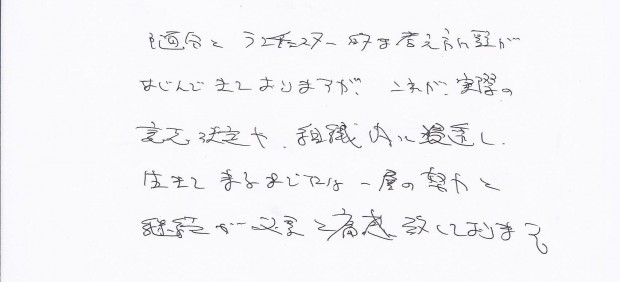 随分と ランチェスター的な考え方に頭が
なじんできておりますが、これが、実際の
意志決定や、組織内に浸透し、
生きてくるまでには一層の努力と
継続が必要と痛感致しております。